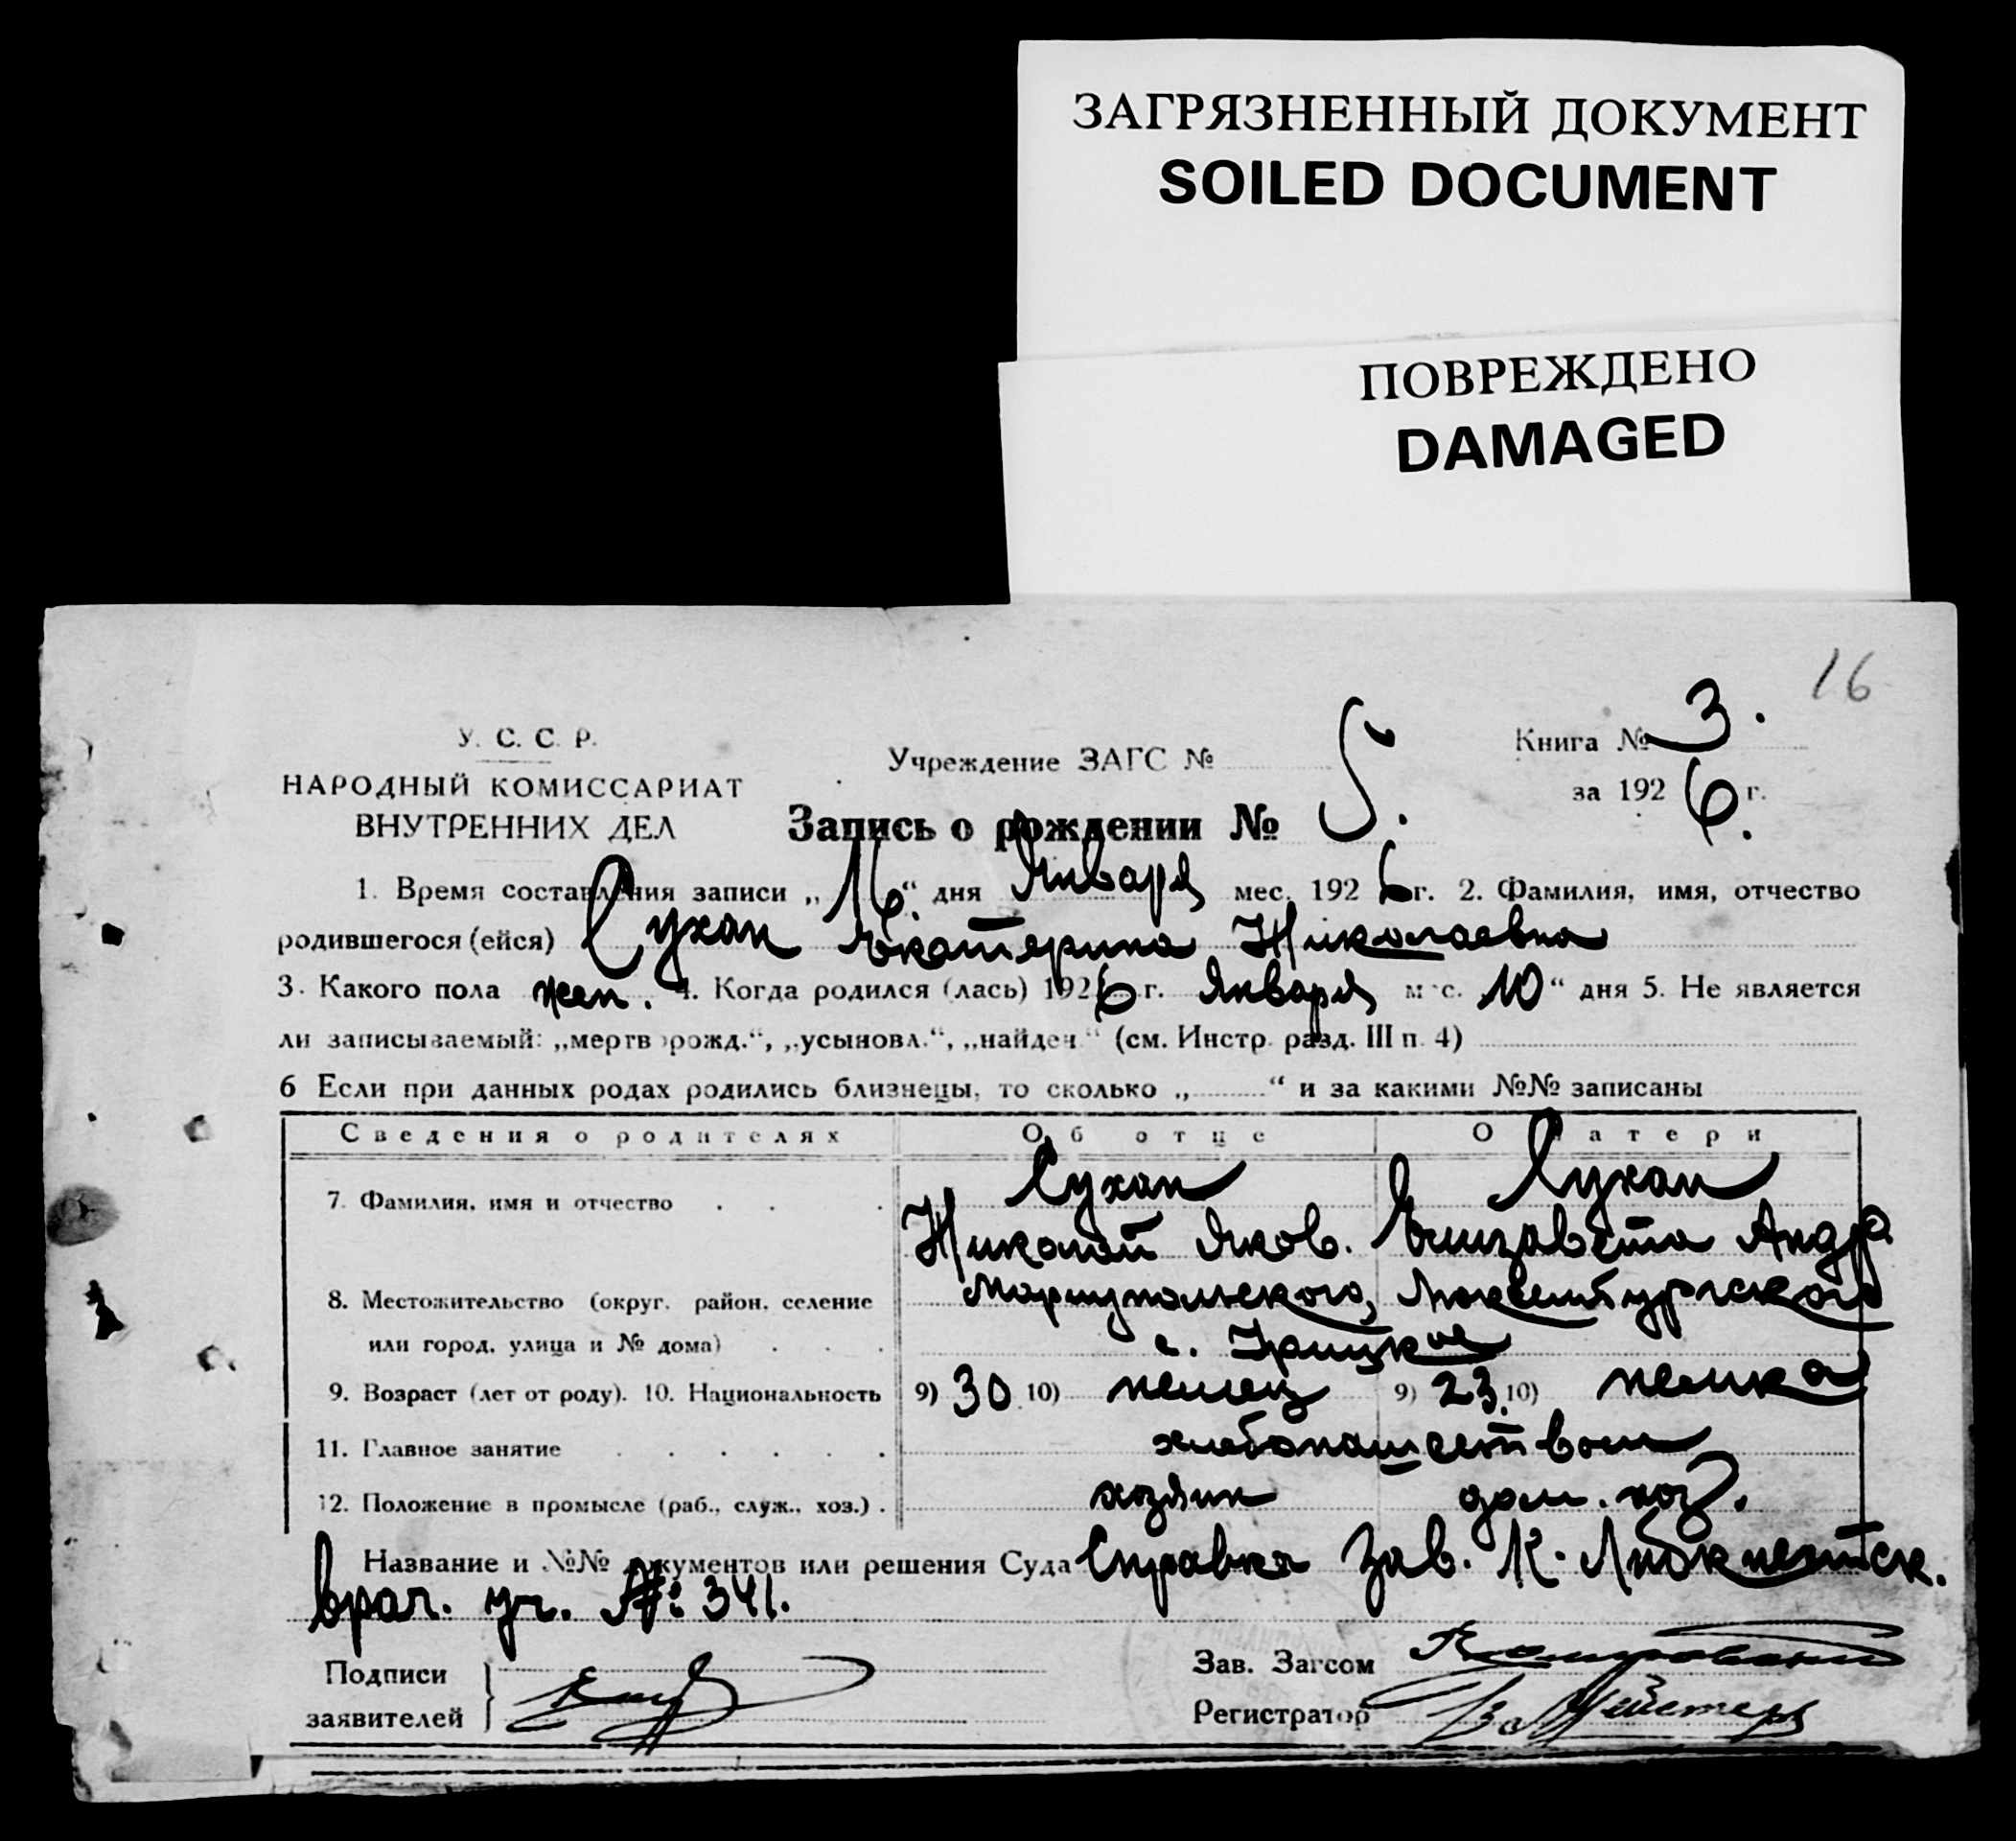 ЗАГРЯЗНЕННЫЙ ДОКУМЕНТ
SOILED DOCUMENT
ПОВРЕЖДЕНО
DAMAGED
16
У. С. С. Р.
НАРОДНЫЙ КОМИССАРИАТ
ВНУТРЕННИХ ДЕЛ
Учреждение ЗАГС №
Книга № 3.
за 1926 г.
Запись о рождении № 5.
1. Время составления записи „16“ дня Января мес. 1926 г. 2. Фамилия, имя, отчество
родившегося (ейся) Сухан Екатерина Николаевна
3. Какого пола жен. 4. Когда родился (лась) 1926 г. Января мес. 10“ дня 5. Не является
ли записываемый: „мертворожд.“, „усыновл.“, „найден“ (см. Инстр. разд. III п. 4)
6 Если при данных родах родились близнецы, то сколько „ “ и за какими №№ записаны
Сведения о родителях Об отце О матери
7. Фамилия, имя и отчество Сухан Сухан
Николай Яков. Елизавета Андр.
8. Местожительство (округ, район, селение Мариупольского, Люксембургского
или город, улица и № дома) с. Урицкое
9. Возраст (лет от роду). 10. Национальность 9) 30 10) немец 9) 23. 10) немка
11. Главное занятие хлебопашеством
12. Положение в промысле (раб., служ., хоз.) хозяин дом. хоз.
Название и №№ документов или решения Суда Справка Зав. К. Либкнехтск.
врач. уч. №: 341.
Подписи
заявителей
Зав. Загсом
Регистратор